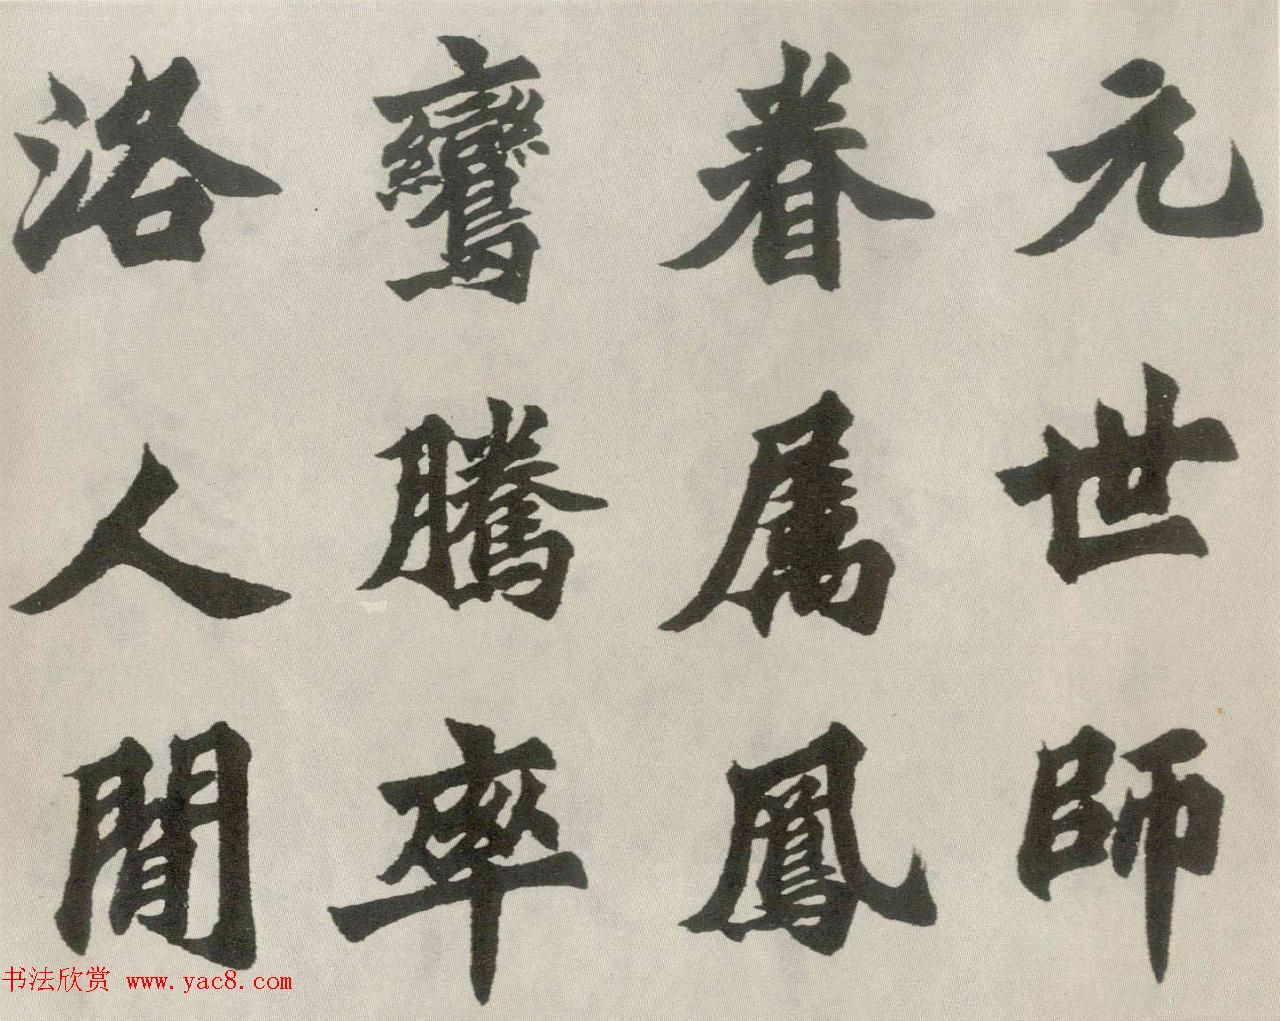 元世師
眷属鳳
鸞騰率
洛人閒
书法欣赏 www.yac8.com